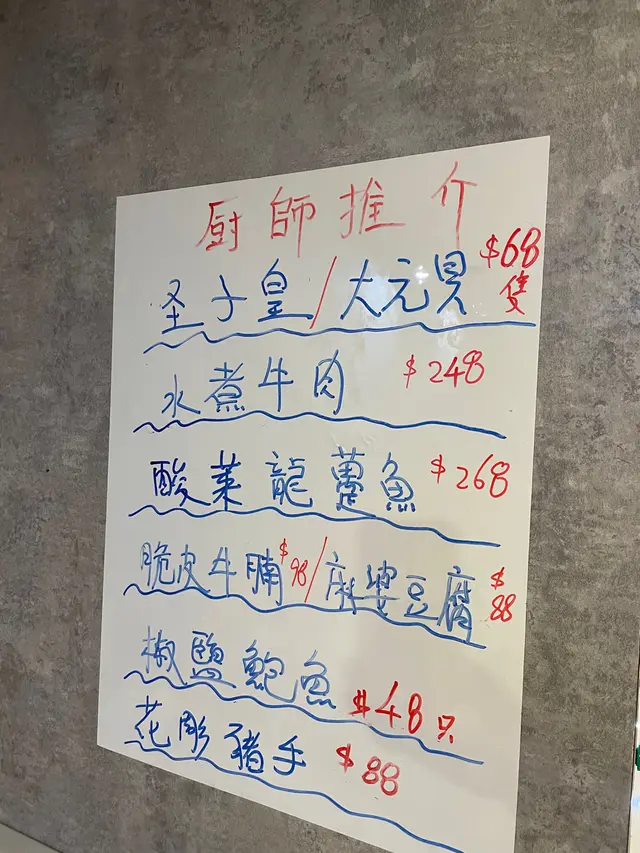 厨師推介
圣子皇/大元贝 $68隻
水煮牛肉 $248
酸菜龍躉魚 $268
脆皮牛腩$98/麻婆豆腐 $88
椒鹽鮑魚 $48只
花彫豬手 $88